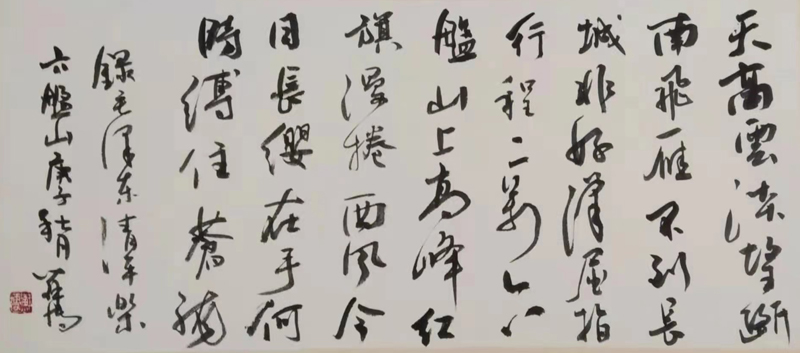 天高雲淡望斷
南飛雁不到長
城非好漢屈指
行程二萬六
盤山上高峰紅
旗漫捲西風今
日長纓在手何
時縛住蒼龍
錄毛澤東清平樂
六盤山庚子